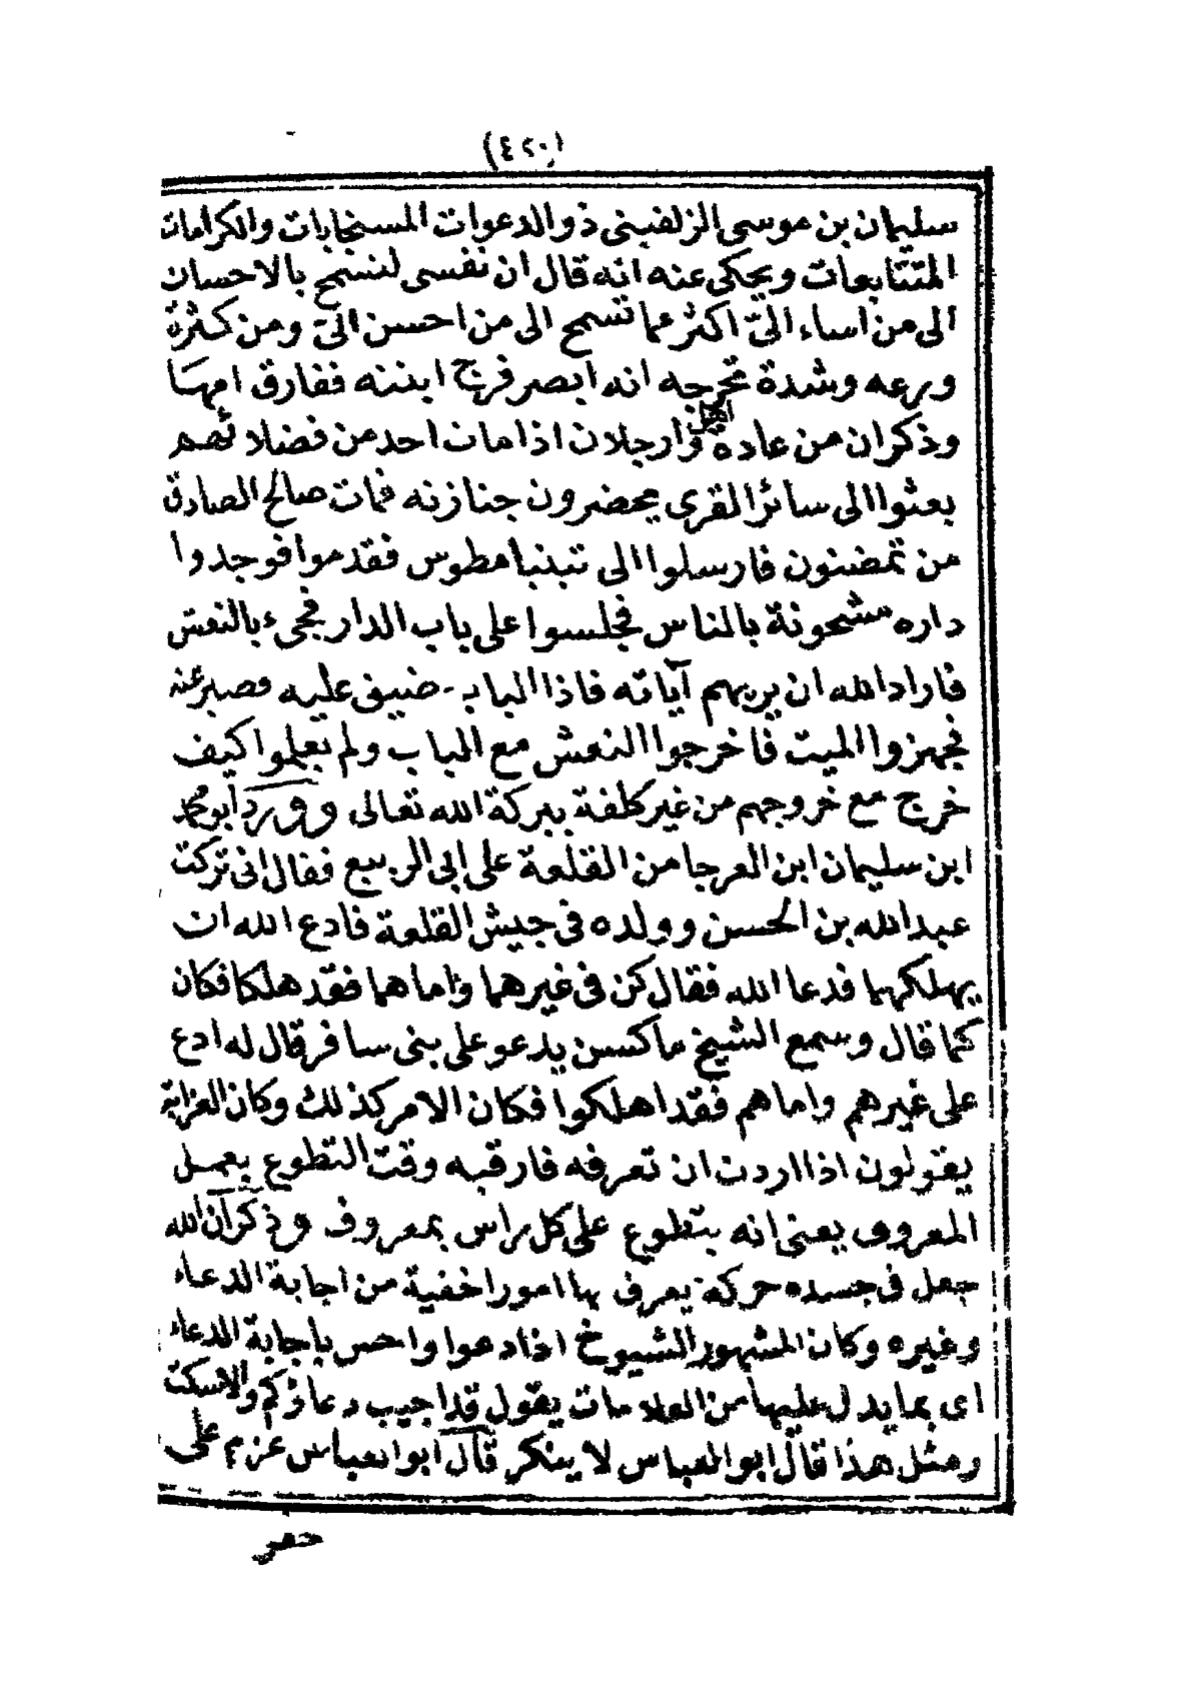 (٤٢٠)
سليمان بن موسى الزلفينى ذو الدعوات المستجابات والكرامات
المتتابعات ويحكى عنه انه قال ان نفسى لتسمح بالاحسان
الى من اساء الىّ اكثر مما تسمح الى من احسن الىّ ومن كثرة
ورعه وشدة تحرجه انه ابصر فرج ابنته ففارق امها
وذكر ان من عادة اهل وارجلان اذا مات احد من فضلائهم
بعثوا الى سائر القرى يحضرون جنازته فمات صالح الصادق
من تمضنون فارسلوا الى تينباماطوس فقدموا فوجدوا
داره مشحونة بالناس فجلسوا على باب الدار فجىء بالنعش
فاراد الله ان يريهم آياته فاذا الباب ضيق عليه وصبر عنه
فجهزوا الميت فاخرجوا النعش مع الباب ولم يعلموا كيف
خرج مع خروجهم من غير كلفة ببركة الله تعالى وورد ابو محمد
ابن سليمان ابن العرجا من القلعة على ابى الربيع فقال انى تركت
عبد الله بن الحسن وولده فى جيش القلعة فادع الله ان
يهلكهما فدعا الله فقال كن فى غيرهما واما هما فقد هلكا فكان
كما قال وسمع الشيخ ماكسن يدعو على بنى سافر قال له ادع
على غيرهم واما هم فقد اهلكوا فكان الامر كذلك وكان العزابة
يقولون اذا اردت ان تعرفه فارقبه وقت التطوع يعمل
المعروف يعنى انه يتطوع على كل راس بمعروف وذكر ان الله
جعل فى جسده حركة يعرف بها امورا خفية من اجابة الدعاء
وغيره وكان المشهور الشيوخ اذا دعوا واحس باجابة الدعاء
اى بما يدل عليها من العلامات يقول قد اجيب دعاؤكم والا سكت
ومثل هذا قال ابو العباس لا ينكر قال ابو العباس عزم على
حفر